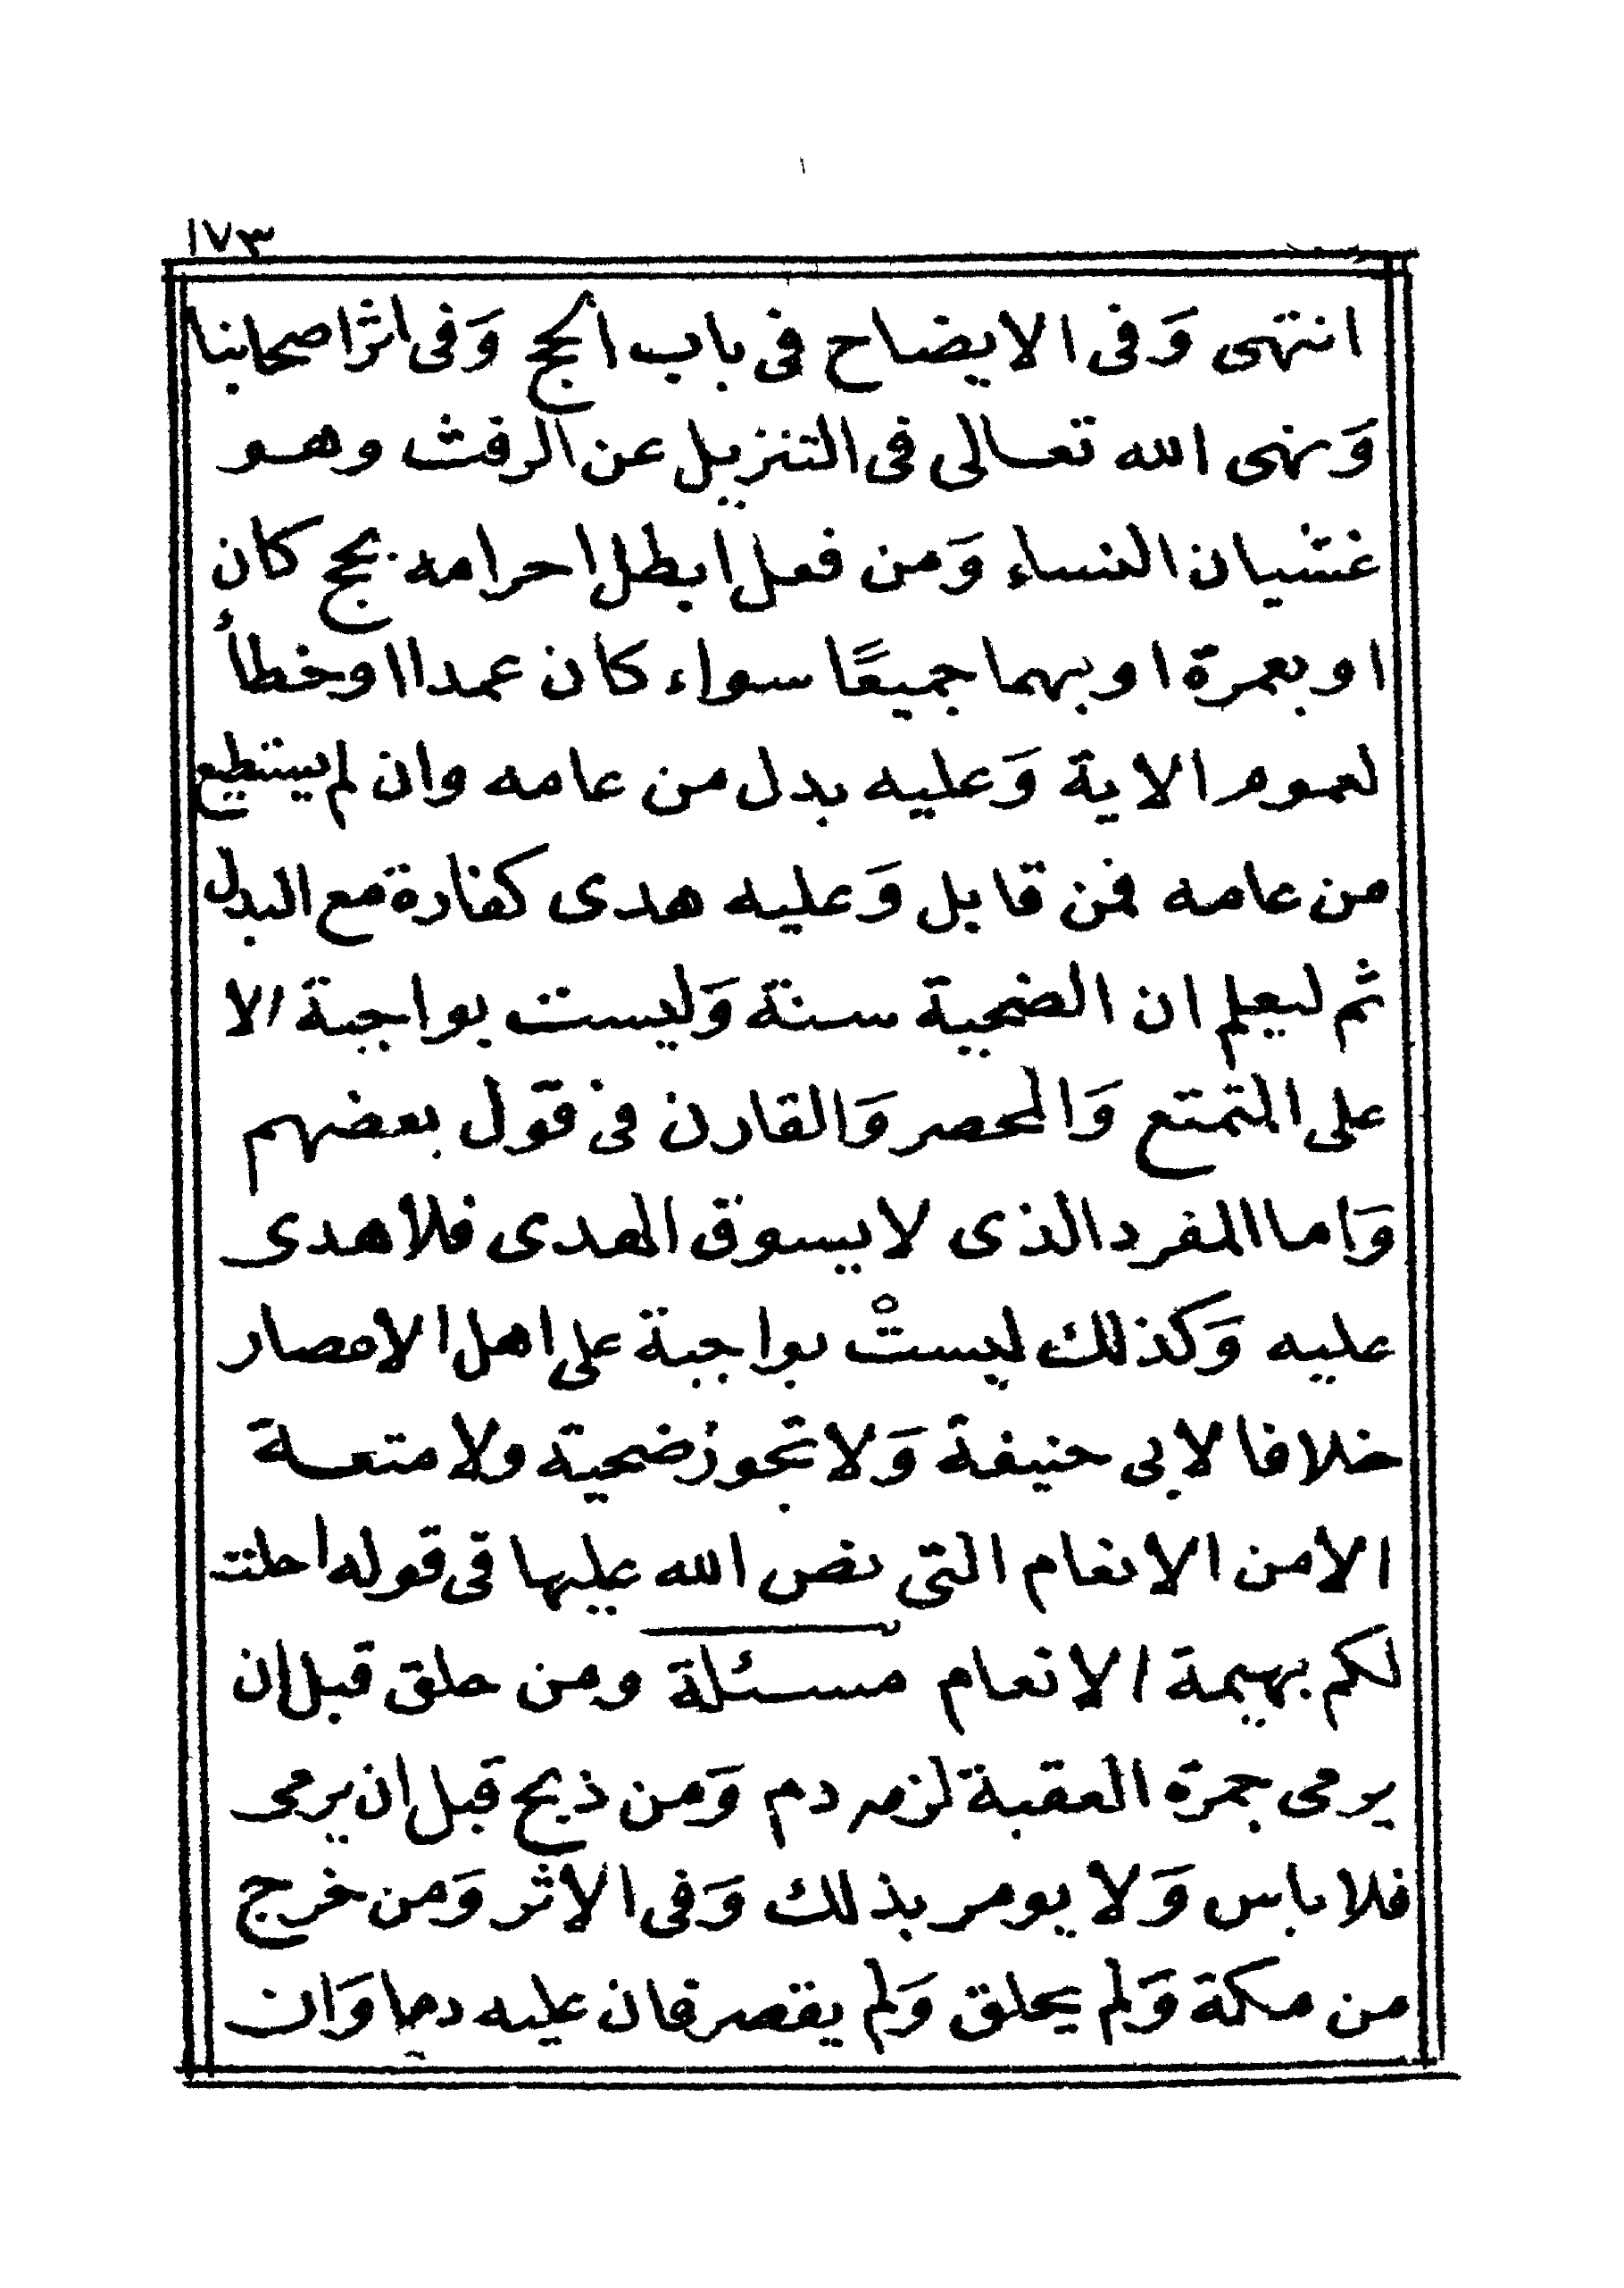 ١٧٣
انتهى وَفى الايضاح فى باب الحج وَفى اثر اصحابنا
وَنهى الله تعالى فى التنزيل عن الرفث وهو
غشيان النساء وَمن فعل ابطل احرامه بحج كان
او بعمرة او بهما جميعًا سواء كان عمدا اوخطأ
لعموم الاية وَعليه بدل من عامه وان لم يستطيع
من عامه فمن قابل وَعليه هدى كفارة مع البدل
ثم ليعلم ان الضحية سنة وَليست بواجبة الا
على المتمتع وَالمحصر وَالقارن فى قول بعضهم
وَاما المفرد الذى لايسوق الهدى فلا هدى
عليه وَكذلك ليستْ بواجبة على اهل الامصار
خلافا لابى حنيفة وَلا تجوز ضحية ولا متعة
الا من الانعام التى نص الله عليها فى قوله احلت
لكم بهيمة الانعام مسئلة ومن حلق قبل ان
يرمى جمرة العقبة لزمه دم وَمن ذبح قبل ان يرمى
فلا باس وَلا يومر بذلك وَفى الاثر وَمن خرج
من مكة وَلم يحلق وَلم يقصر فان عليه دما وَان